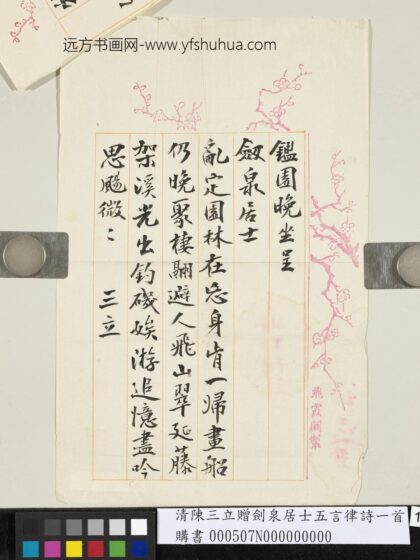 远方书画网-www.yfshuhua.com
鑑園晚坐呈
劔泉居士
亂定園林在忘身肯一歸畫船
仍晚聚棲翮避人飛山翠延藤
架溪光出釣磯娭游追憶盡吟
思颺微〻 三立
飛霞閣製
清陳三立贈劍泉居士五言律詩一首
購書 000507N000000000